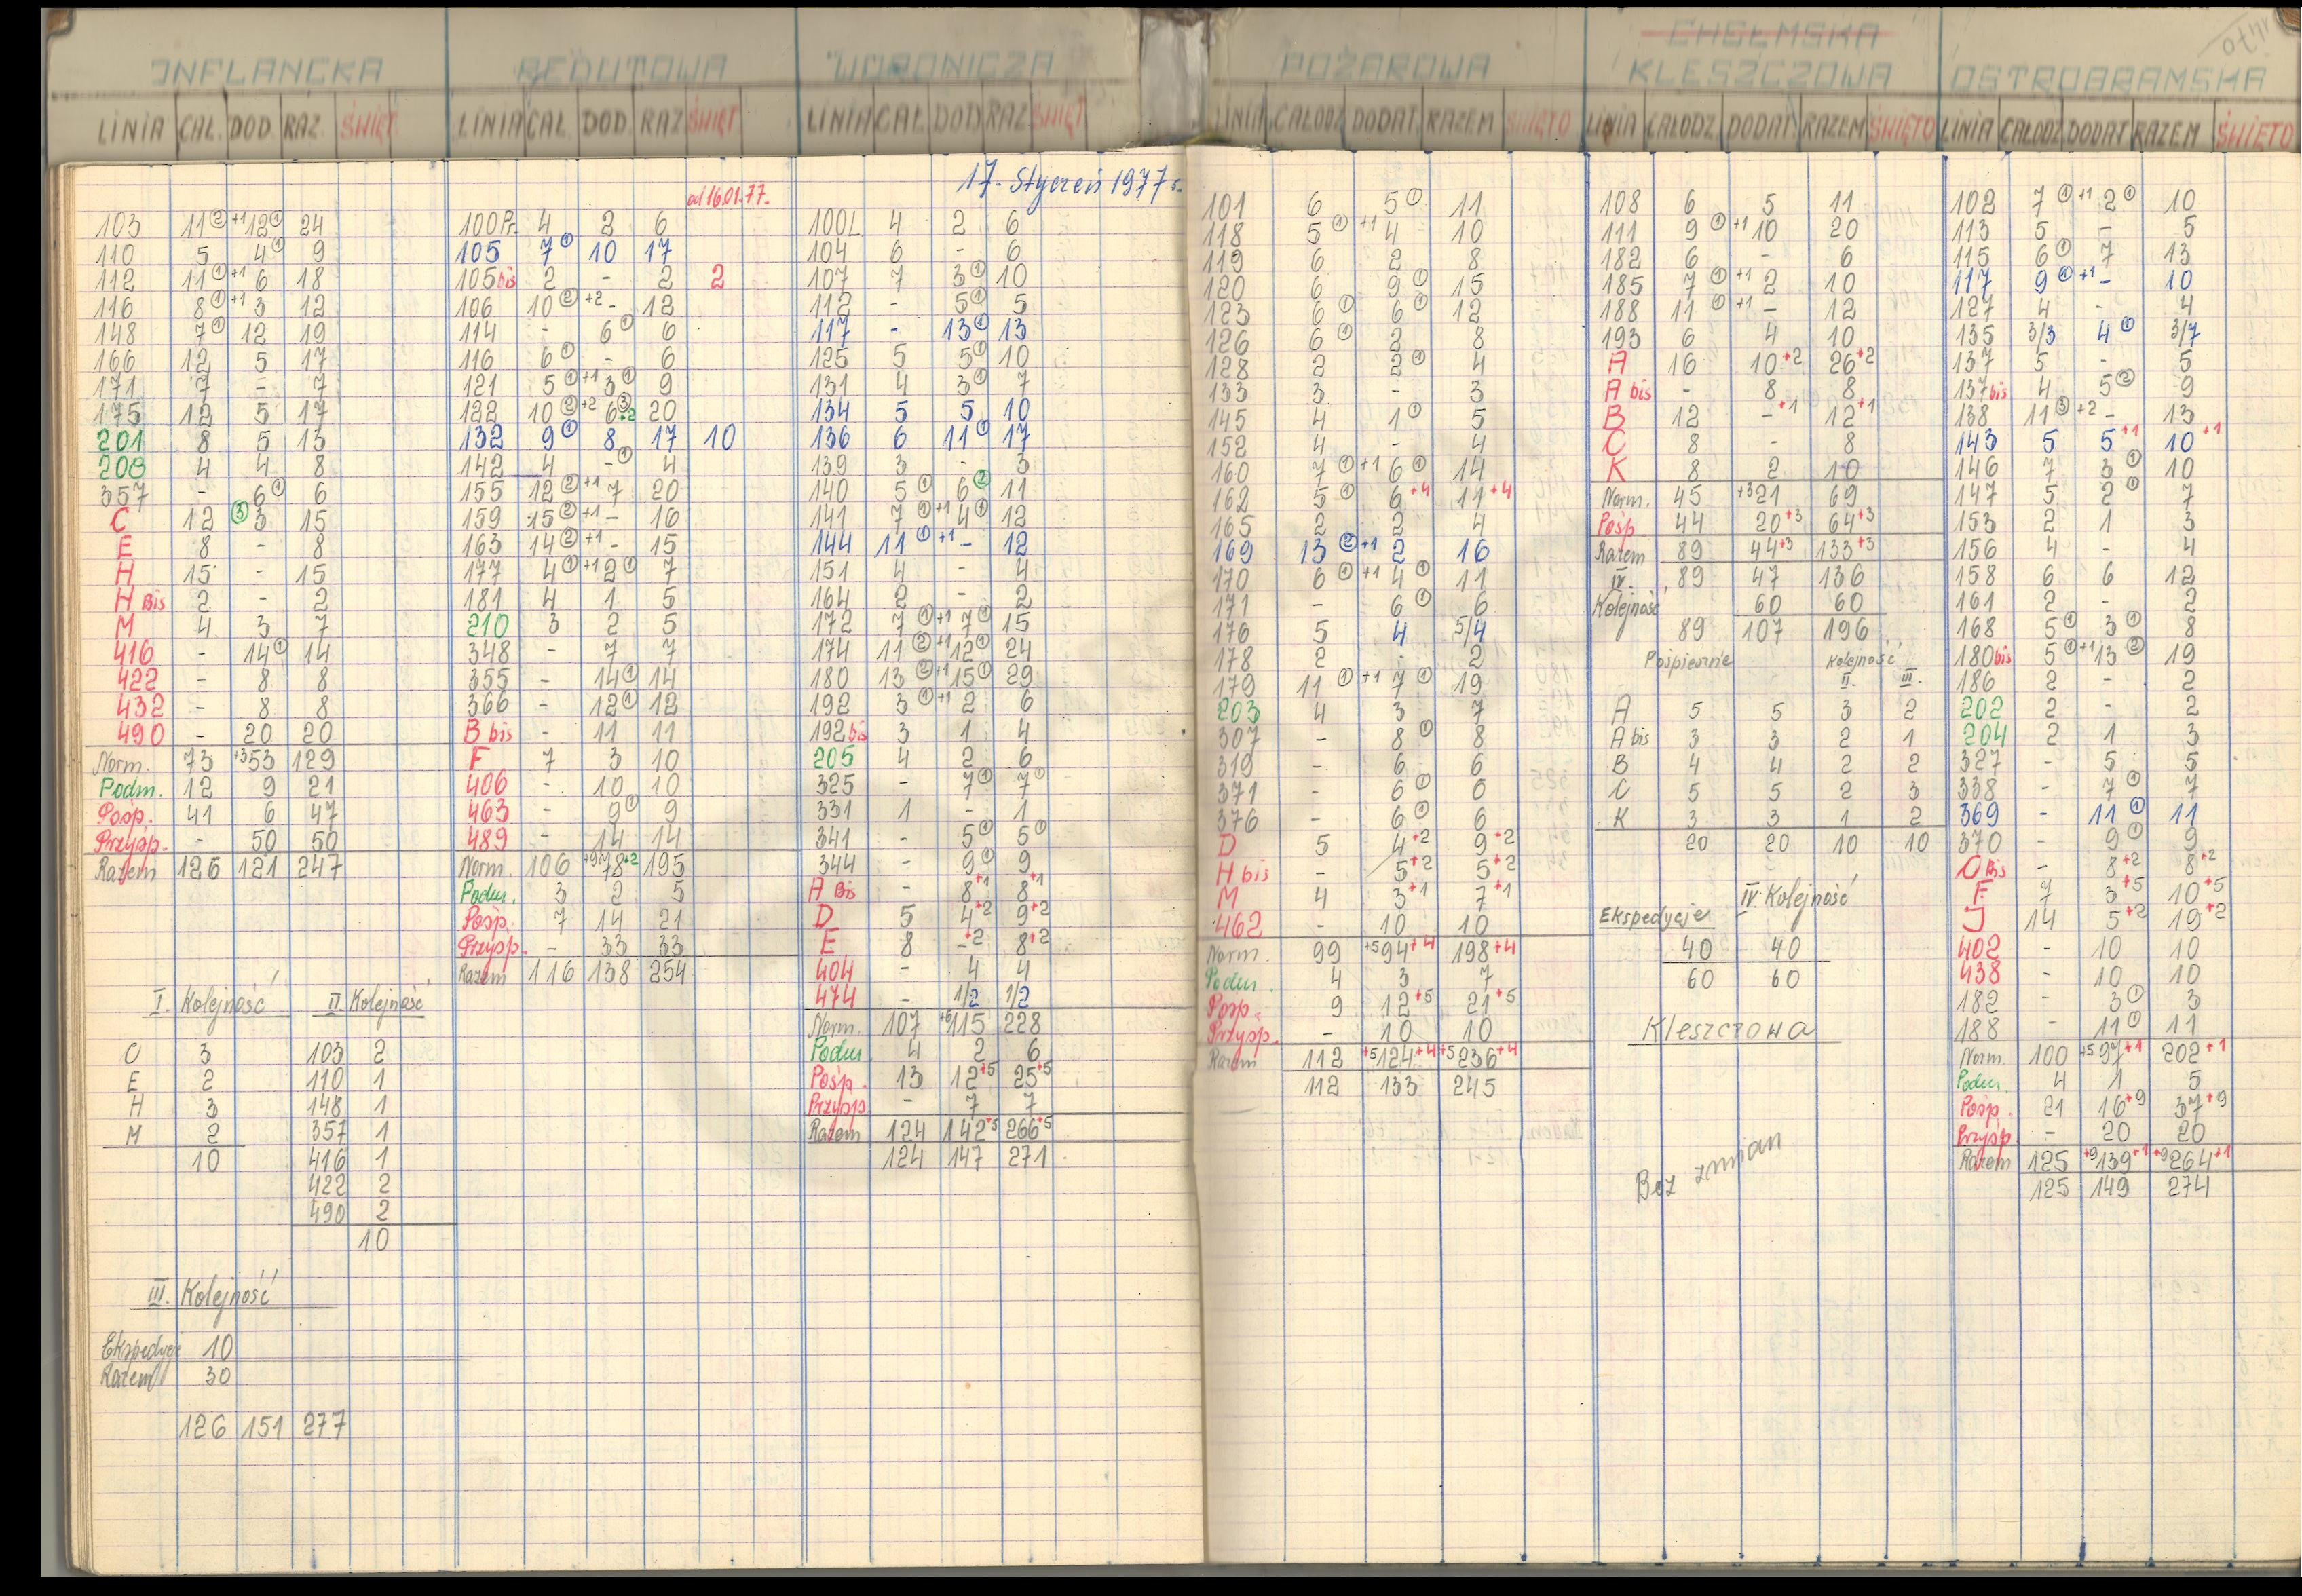 INFLANCKA
LINIA CAŁ. DOD. RAZ. ŚWIĘT.
103 11② +1 12① 24
110 5 4① 9
112 11① +1 6 18
116 8① +1 3 12
148 7① 12 19
166 12 5 17
171 7 - 7
175 12 5 17
201 8 5 13
208 4 4 8
357 - 6① 6
C 12 ③ 3 15
E 8 - 8
H 15 - 15
H Bis 2 - 2
M 4 3 7
416 - 14① 14
422 - 8 8
432 - 8 8
490 - 20 20
Norm. 73 +3 53 129
Podm. 12 9 21
Posp. 41 6 47
Przysp. - 50 50
Razem 126 121 247
I. Kolejność II. Kolejność
C 3 103 2
E 2 110 1
H 3 148 1
M 2 357 1
10 416 1
422 2
490 2
10
III. Kolejność
Ekspedycje 10
Razem 30
126 151 277
REDUTOWA
LINIA CAŁ. DOD. RAZ ŚWIĘT
od 16.01.77.
100Pr 4 2 6
105 7① 10 17
105bis 2 - 2 2
106 10② +2 - 12
114 - 6① 6
116 6① - 6
121 5① +1 3① 9
122 10② +2 6③ +2 20
132 9① 8 17 10
142 4 -① 4
155 12② +1 7 20
159 15② +1 - 16
163 14② +1 - 15
177 4① +1 2① 7
181 4 1 5
210 3 2 5
348 - 7 7
355 - 14① 14
366 - 12① 12
B bis - 11 11
F 7 3 10
406 - 10 10
463 - 9① 9
489 - 14 14
Norm. 106 +9 78+2 195
Podm. 3 2 5
Posp. 7 14 21
Przysp. - 33 33
Razem 116 138 254
WORONICZA
LINIA CAŁ. DOD RAZ ŚWIĘT
17. Styczeń 1977 r.
100L 4 2 6
104 6 - 6
107 7 3① 10
112 - 5① 5
117 - 13① 13
125 5 5① 10
131 4 3① 7
134 5 5 10
136 6 11① 17
139 3 - 3
140 5① 6② 11
141 7① +1 4① 12
144 11① +1 - 12
151 4 - 4
164 2 - 2
172 7① +1 7① 15
174 11② +1 12① 24
180 13② +1 15① 29
192 3① +1 2 6
192bis 3 1 4
205 4 2 6
325 - 7① 7①
331 1 - 1
341 - 5① 5①
344 - 9① 9
A Bis - 8+1 8+1
D 5 4+2 9+2
E 8 -+2 8+2
404 - 4 4
474 - 1/2 1/2
Norm. 107 +6 115 228
Podm 4 2 6
Pośp. 13 12+5 25+5
Przysp - 7 7
Razem 124 142+5 266+5
124 147 271
POŻAROWA
LINIA CAŁODZ. DODAT. RAZEM ŚWIĘTO
101 6 5① 11
118 5① +1 4 10
119 6 2 8
120 6 9① 15
123 6① 6① 12
126 6① 2 8
128 2 2① 4
133 3 - 3
145 4 1① 5
152 4 - 4
160 7① +1 6① 14
162 5① 6+4 11+4
165 2 2 4
169 13② +1 2 16
170 6① +1 4① 11
171 - 6① 6
176 5 4 5/4
178 2 - 2
179 11① +1 7① 19
203 4 3 7
307 - 8① 8
319 - 6 6
371 - 6① 6
376 - 6① 6
D 5 4+2 9+2
H bis - 5+2 5+2
M 4 3+1 7+1
462 - 10 10
Norm. 99 +5 94+4 198+4
Podm. 4 3 7
Posp. 9 12+5 21+5
Przysp. - 10 10
Razem 112 +5 124+4 +5 236+4
112 133 245
CHEŁMSKA
KLESZCZOWA
LINIA CAŁODZ. DODAT. RAZEM ŚWIĘTO
108 6 5 11
111 9① +1 10 20
182 6 - 6
185 7① +1 2 10
188 11① +1 - 12
193 6 4 10
A 16 10+2 26+2
A bis - 8 8
B 12 -+1 12+1
C 8 - 8
K 8 2 10
Norm. 45 +3 21 69
Pośp. 44 20+3 64+3
Razem 89 44+3 133+3
IV. 89 47 136
Kolejność 60 60
89 107 196
Pośpieszne Kolejność
II. III.
A 5 5 3 2
A bis 3 3 2 1
B 4 4 2 2
C 5 5 2 3
K 3 3 1 2
20 20 10 10
IV. Kolejność
Ekspedycje
40 40
60 60
Kleszczowa
Bez zmian
OSTROBRAMSKA
LINIA CAŁODZ. DODAT RAZEM ŚWIĘTO
102 7① +1 2① 10
113 5 - 5
115 6① 7 13
117 9① +1 - 10
127 4 - 4
135 3/3 4① 3/7
137 5 - 5
137bis 4 5② 9
138 11③ +2 - 13
143 5 5+1 10+1
146 7 3① 10
147 5 2① 7
153 2 1 3
156 4 - 4
158 6 6 12
161 2 - 2
168 5① 3① 8
180bis 5① +1 13② 19
186 2 - 2
202 2 - 2
204 2 1 3
327 - 5 5
338 - 7① 7
369 - 11① 11
370 - 9① 9
C Bis - 8+2 8+2
F 7 3+5 10+5
J 14 5+2 19+2
402 - 10 10
438 - 10 10
182 - 3① 3
188 - 11① 11
Norm. 100 +5 97+1 202+1
Podm. 4 1 5
Pośp. 21 16+9 37+9
Przysp - 20 20
Razem 125 +9 139+1 +9 264+1
125 149 274